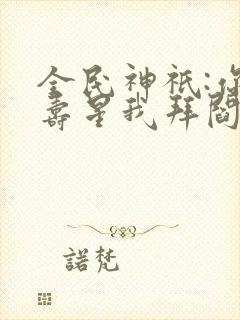 全民神祇:你
壽星我拜閻
諾梵